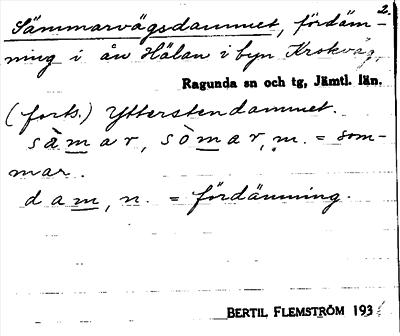 2.
Sämmarvägsdammet, fördäm-
ning i ån Hälan i byn Krokvåg,
Ragunda sn och tg, Jämtl. län.
(forts.) Ytterstendammet.
sàmar, sòmar, m. = som-
mar.
dam, n. = fördämning.
BERTIL FLEMSTRÖM 193